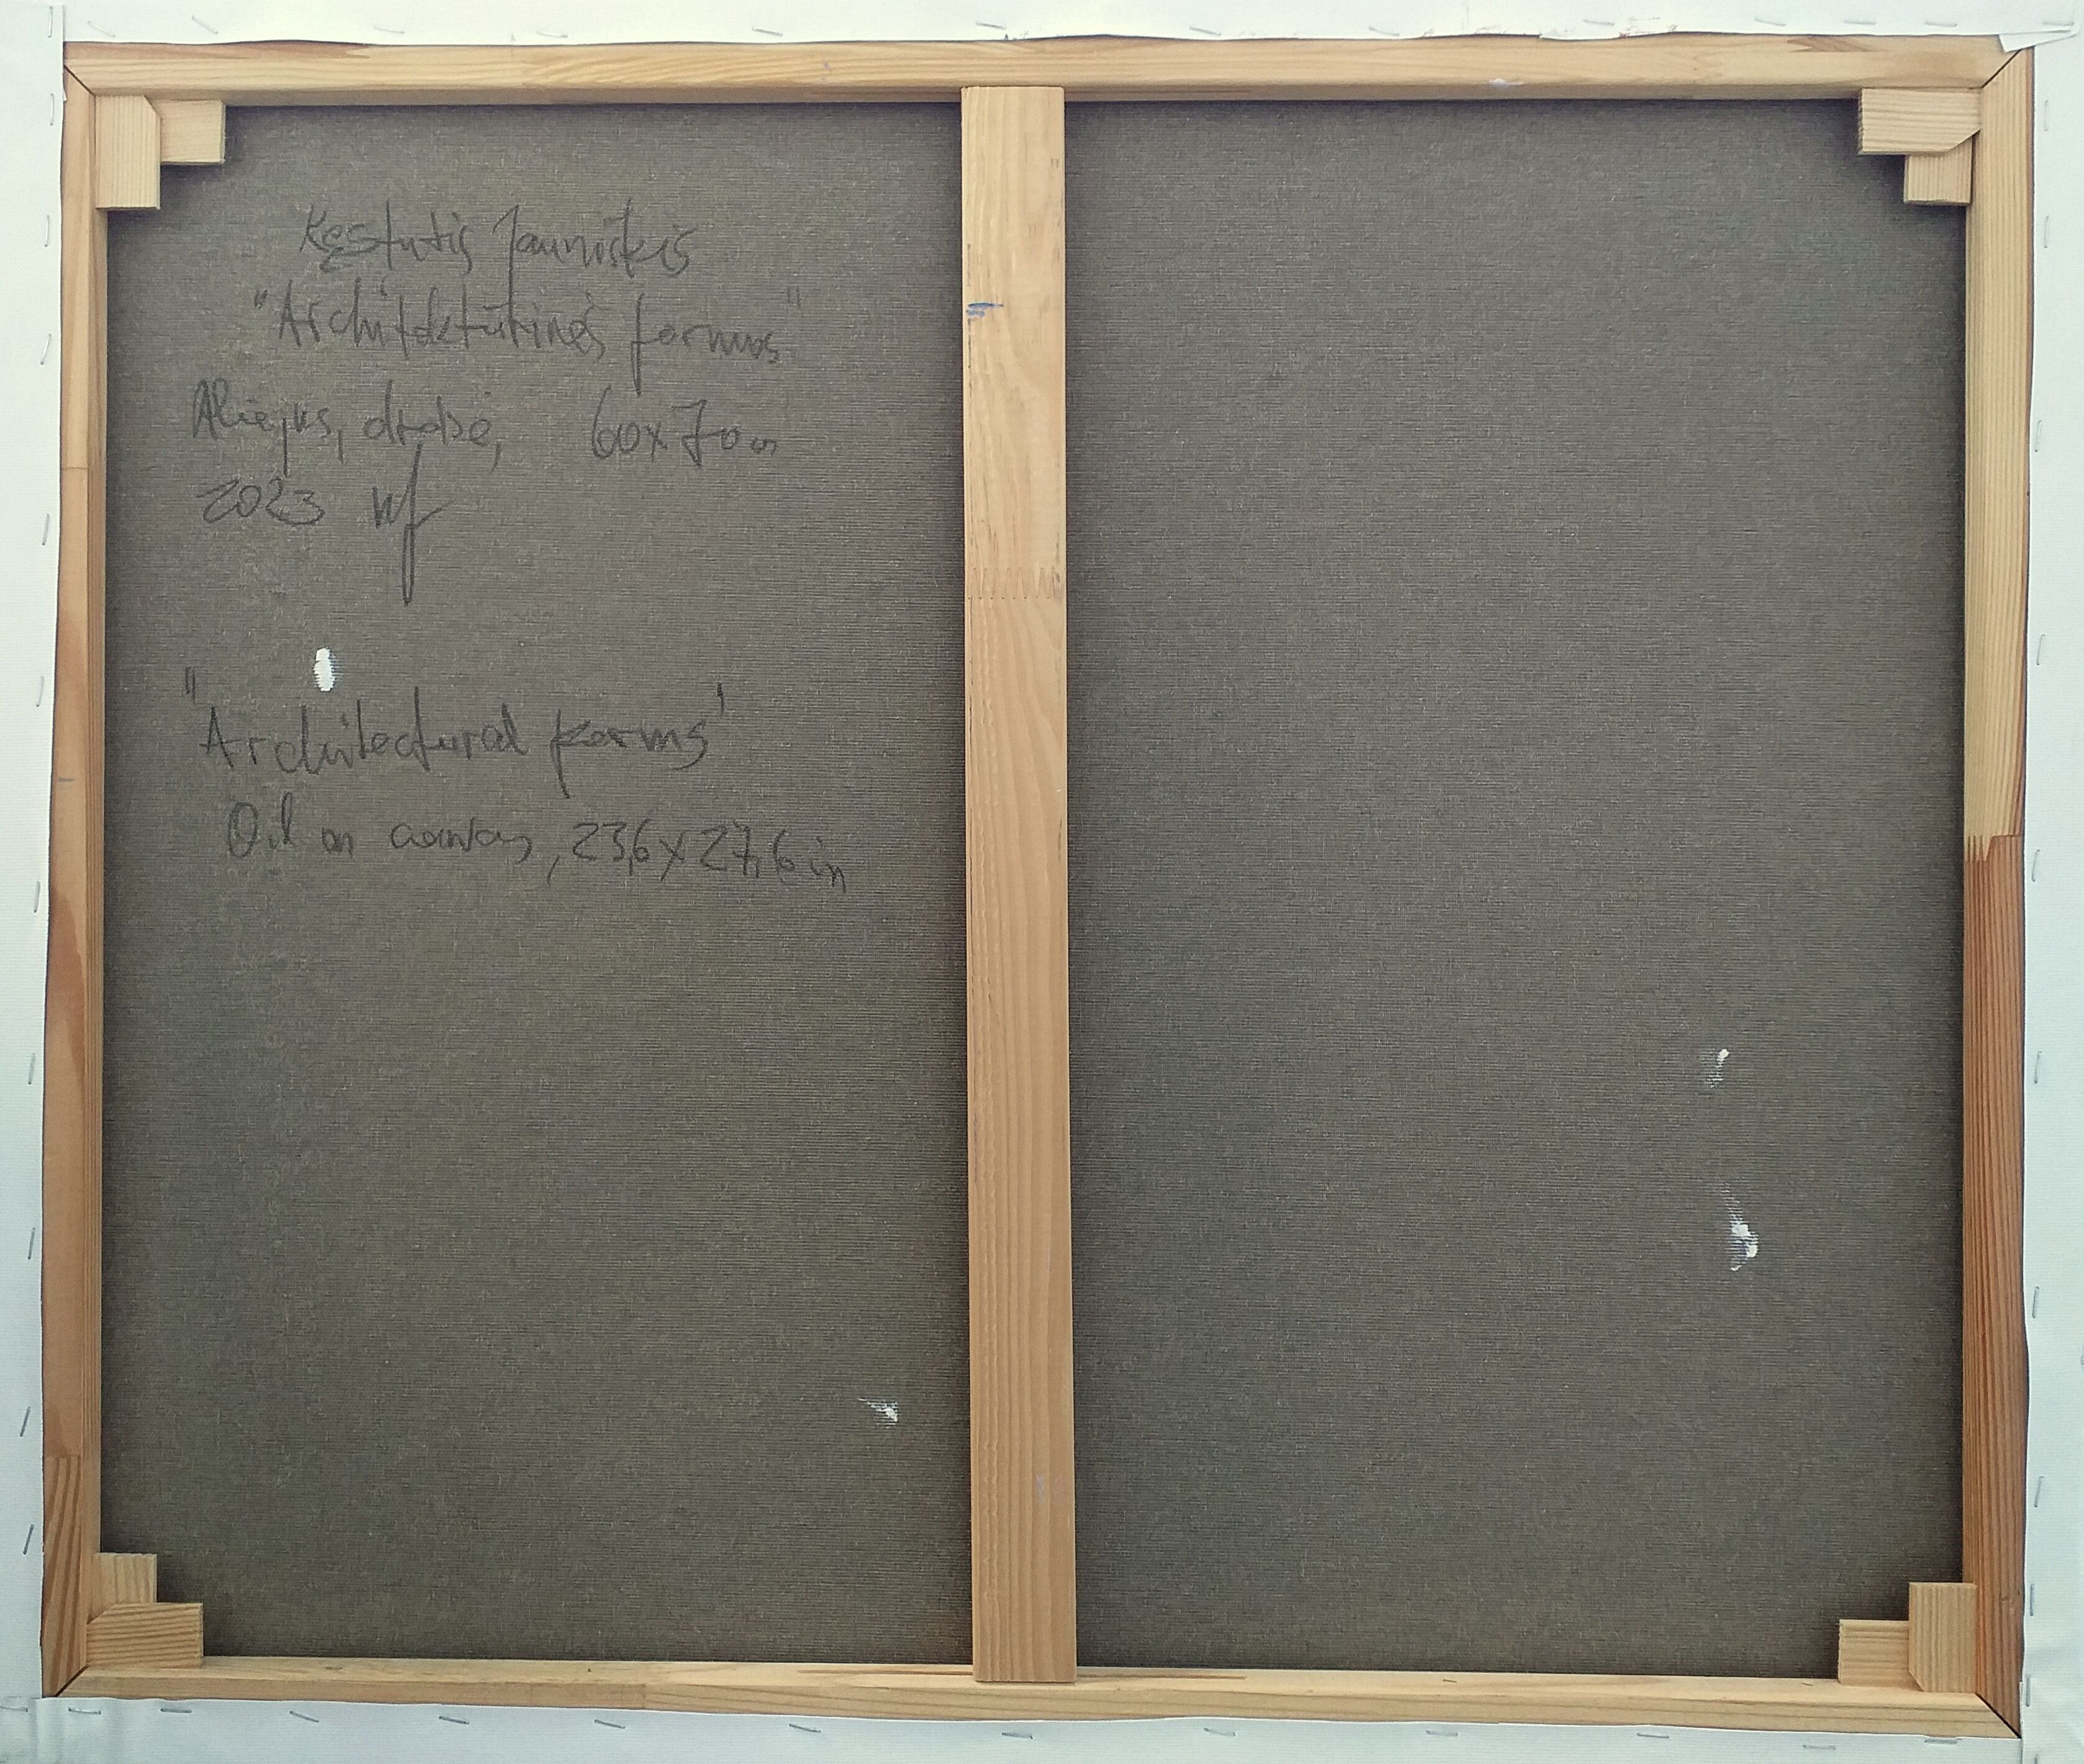 Kęstutis Jauniškis
"Architektūrinės formos"
Aliejus, drobė, 60x70 cm
2023
"Architectural forms"
Oil on canvas, 23,6x27,6 in